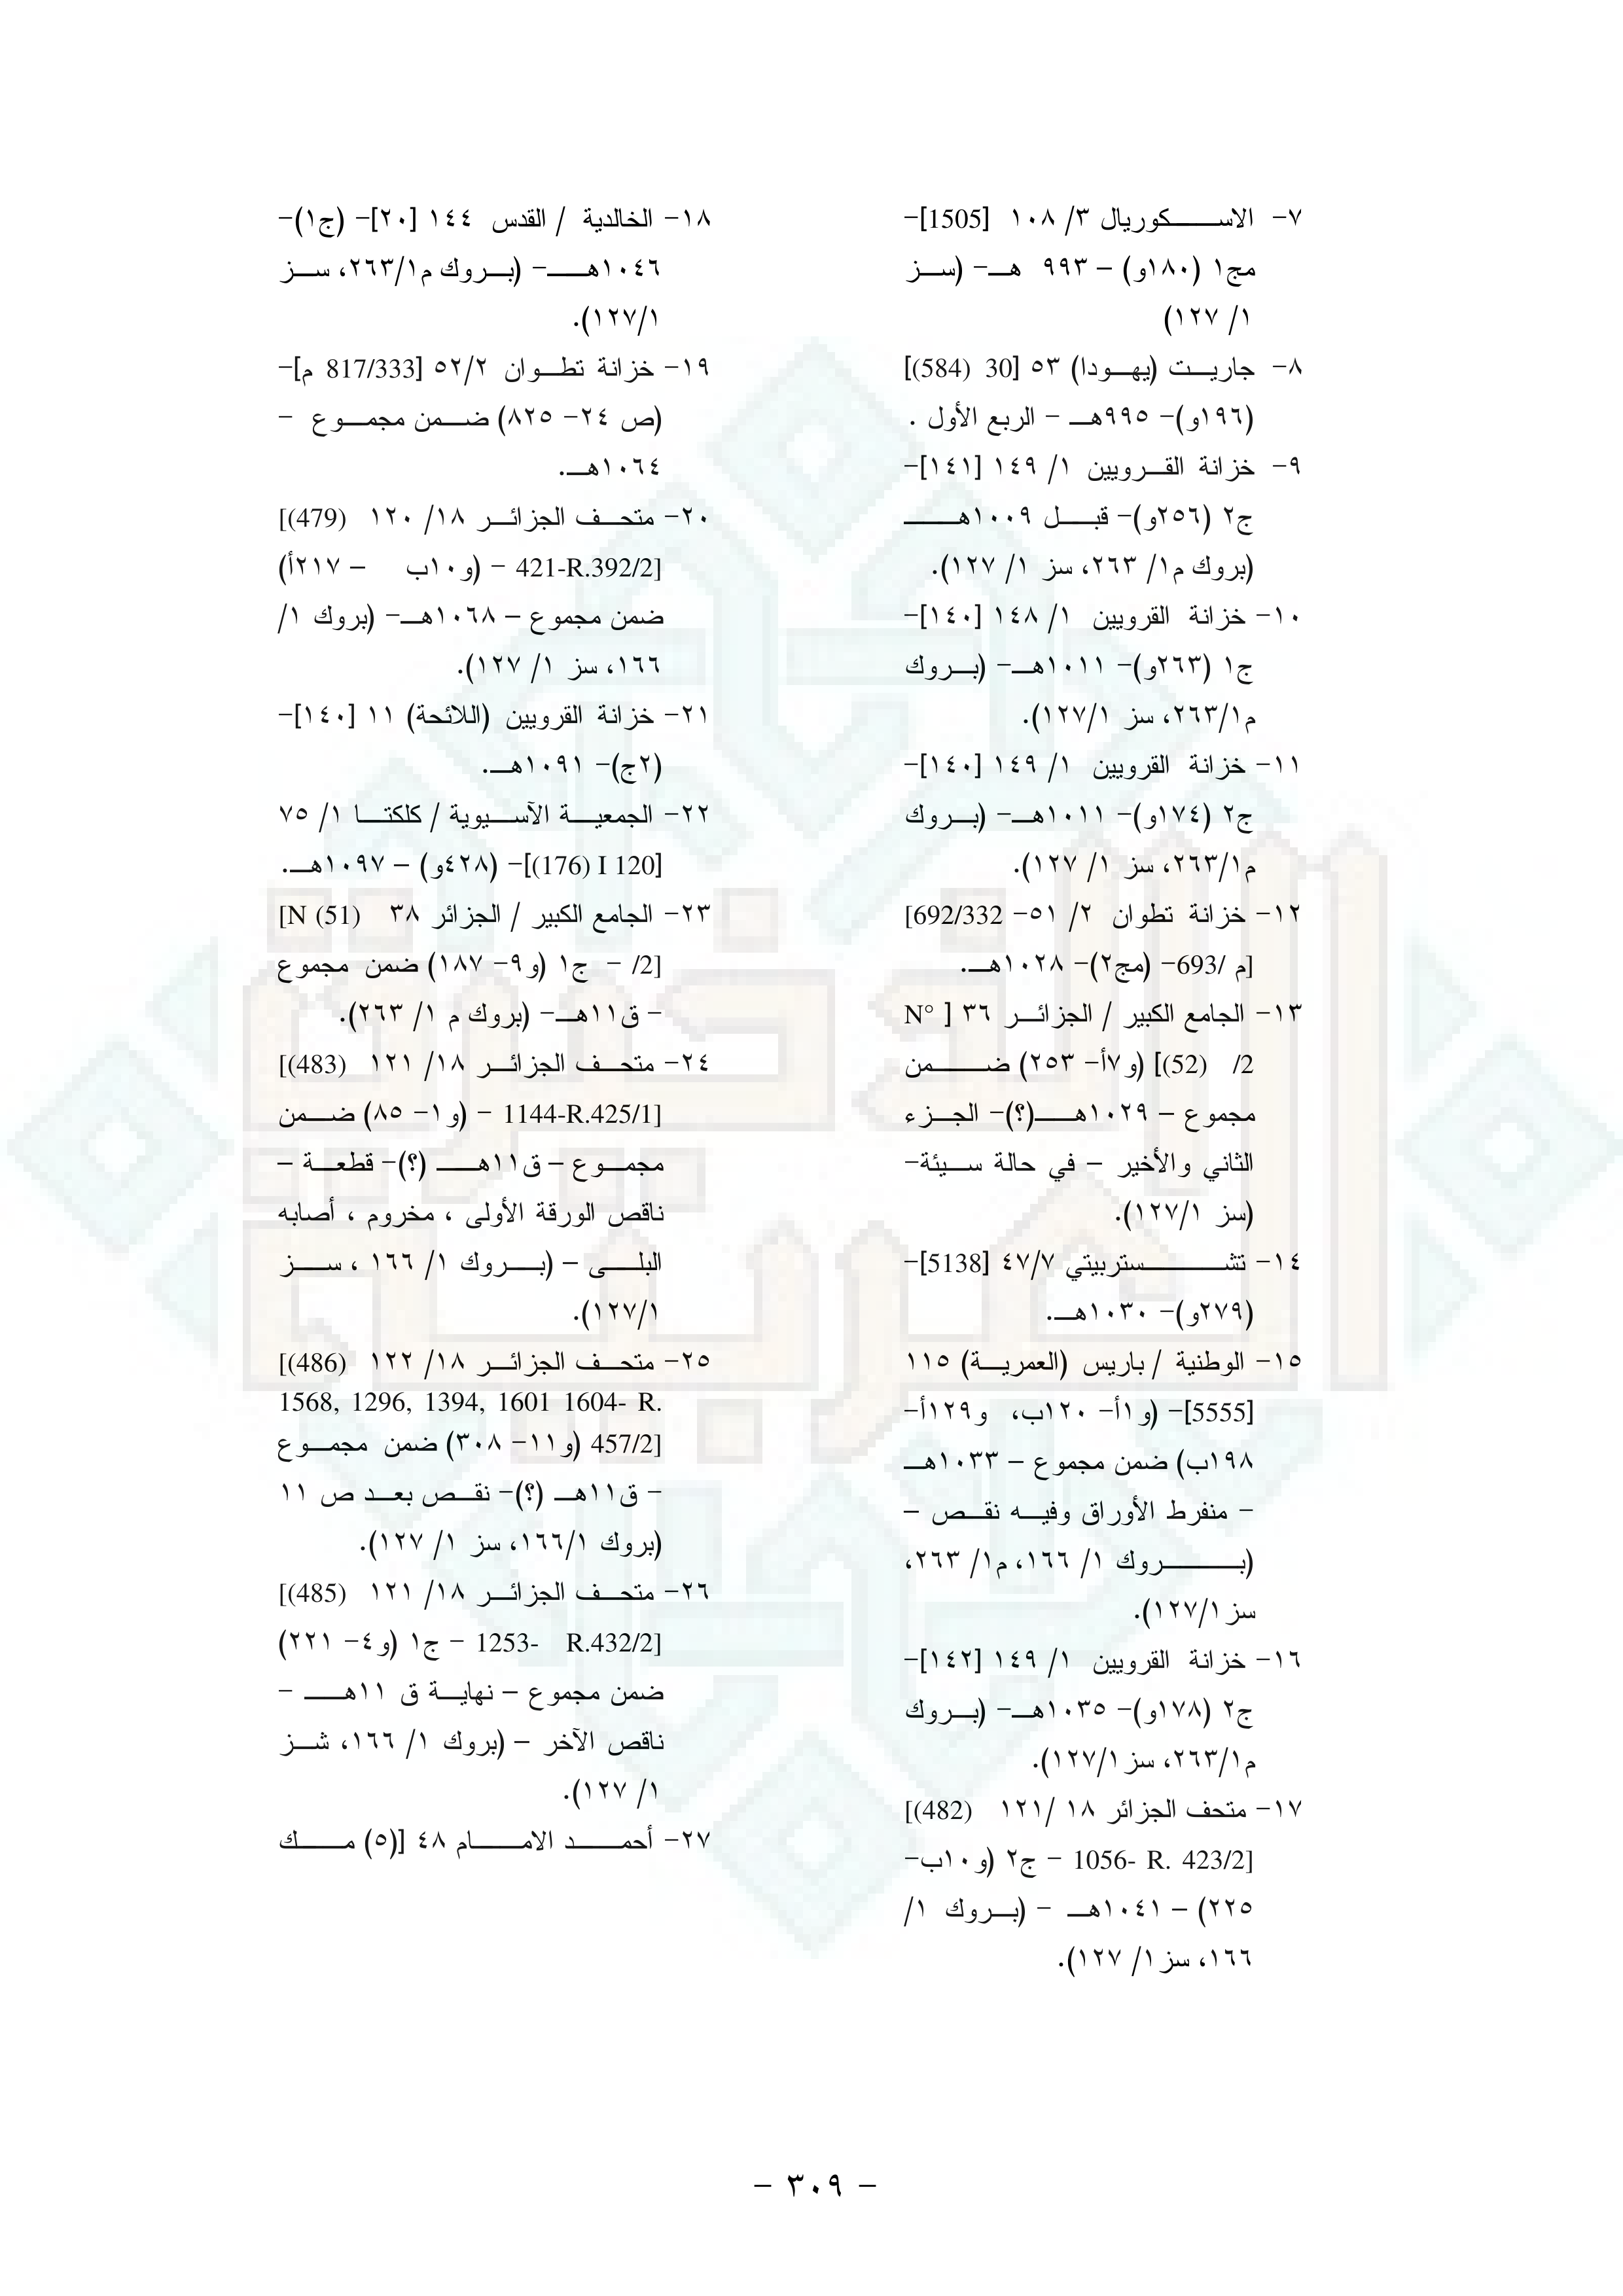 ٧- الاسكوريال ٣/ ١٠٨ [1505]-
مج١ (١٨٠و) – ٩٩٣ هـ- (سز
١/ ١٢٧)
٨- جاريت (يهودا) ٥٣ [30 (584)]
(١٩٦و)- ٩٩٥هـ - الربع الأول .
٩- خزانة القرويين ١/ ١٤٩ [١٤١]-
ج٢ (٢٥٦و)- قبل ١٠٠٩هـ
(بروك م١/ ٢٦٣، سز ١/ ١٢٧).
١٠- خزانة القرويين ١/ ١٤٨ [١٤٠]-
ج١ (٢٦٣و)- ١٠١١هـ- (بروك
م٢٦٣/١، سز ١٢٧/١).
١١- خزانة القرويين ١/ ١٤٩ [١٤٠]-
ج٢ (١٧٤و)- ١٠١١هـ- (بروك
م٢٦٣/١، سز ١/ ١٢٧).
١٢- خزانة تطوان ٢/ ٥١- 692/332]
[م /693- (مج٢)- ١٠٢٨هـ.
١٣- الجامع الكبير / الجزائر ٣٦ [ N°
2/ (52)] (و٧أ- ٢٥٣) ضمن
مجموع – ١٠٢٩هـ(؟)- الجزء
الثاني والأخير – في حالة سيئة-
(سز ١٢٧/١).
١٤- تشستربيتي ٤٧/٧ [5138]-
(٢٧٩و)- ١٠٣٠هـ.
١٥- الوطنية / باريس (العمرية) ١١٥
[5555]- (و١أ- ١٢٠ب، و١٢٩أ-
١٩٨ب) ضمن مجموع – ١٠٣٣هـ
- منفرط الأوراق وفيه نقص –
(بروك ١/ ١٦٦، م١/ ٢٦٣،
سز ١٢٧/١).
١٦- خزانة القرويين ١/ ١٤٩ [١٤٢]-
ج٢ (١٧٨و)- ١٠٣٥هـ- (بروك
م٢٦٣/١، سز ١٢٧/١).
١٧- متحف الجزائر ١٨ /١٢١ (482)]
[1056- R. 423/2 - ج٢ (و١٠ب-
٢٢٥) – ١٠٤١هـ - (بروك ١/
١٦٦، سز ١/ ١٢٧).
١٨- الخالدية / القدس ١٤٤ [٢٠]- (ج١)-
١٠٤٦هـ- (بروك م٢٦٣/١، سز
١٢٧/١).
١٩- خزانة تطوان ٥٢/٢ [817/333 م]-
(ص ٢٤- ٨٢٥) ضمن مجموع -
١٠٦٤هـ.
٢٠- متحف الجزائر ١٨/ ١٢٠ (479)]
[421-R.392/2 - (و١٠ب – ٢١٧أ)
ضمن مجموع – ١٠٦٨هـ- (بروك ١/
١٦٦، سز ١/ ١٢٧).
٢١- خزانة القرويين (اللائحة) ١١ [١٤٠]-
(٢ج)- ١٠٩١هـ.
٢٢- الجمعية الآسيوية / كلكتا ١/ ٧٥
[(176) I 120]- (٤٢٨و) – ١٠٩٧هـ.
٢٣- الجامع الكبير / الجزائر ٣٨ N (51)]
[2/ - ج١ (و٩- ١٨٧) ضمن مجموع
- ق١١هـ- (بروك م ١/ ٢٦٣).
٢٤- متحف الجزائر ١٨/ ١٢١ (483)]
[1144-R.425/1 - (و١- ٨٥) ضمن
مجموع – ق١١هـ (؟)- قطعة –
ناقص الورقة الأولى ، مخروم ، أصابه
البلى – (بروك ١/ ١٦٦ ، سز
١٢٧/١).
٢٥- متحف الجزائر ١٨/ ١٢٢ (486)]
1568, 1296, 1394, 1601 1604- R.
[457/2 (و١١- ٣٠٨) ضمن مجموع
- ق١١هـ (؟)- نقص بعد ص ١١
(بروك ١٦٦/١، سز ١/ ١٢٧).
٢٦- متحف الجزائر ١٨/ ١٢١ (485)]
[1253- R.432/2 - ج١ (و٤- ٢٢١)
ضمن مجموع – نهاية ق ١١هـ -
ناقص الآخر – (بروك ١/ ١٦٦، شز
١/ ١٢٧).
٢٧- أحمد الامام ٤٨ [(٥) مك
- ٣٠٩ -